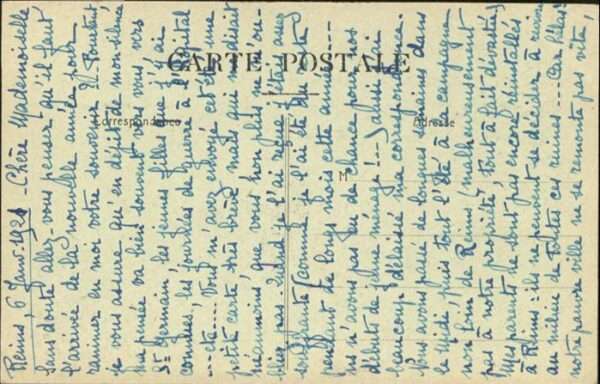 CARTE POSTALE
Correspondance
Adresse
M
Reims, 6 Janv. 1921 - Chère Mademoiselle
Sans doute allez-vous penser qu'il faut
l'arrivée de la nouvelle année pour
ranimer en moi votre souvenir. Pourtant
je vous assure qu'en dépit de mon silence
ma pensée va bien souvent vers vous, vers
St Germain, les jeunes filles que j'y ai
connues, les journées de guerre à l'hôpital
... etc... Vous m'avez envoyé cet été une
petite carte très brève mais qui me disait
néanmoins, que vous non plus ne m'ou-
bliez pas. Quand je l'ai reçue j'étais assez
souffrante (comme je l'ai été du reste
pendant de longs mois cette année) ...
nous n'avons pas eu de chance pour nos
débuts de jeune ménage!... j'ai
beaucoup délaissé ma correspondance.
Nous avons passé de longues semaines dans
le Midi, puis tout l'été à la campagne
non loin de Reims (malheureusement
pas à notre propriété, tout à fait dévastée)
Mes parents ne sont pas encore réinstallés
à Reims: ils ne peuvent se décider à revivre
au milieu de toutes ces ruines... Car hélas!
notre pauvre ville ne se remonte pas vite,